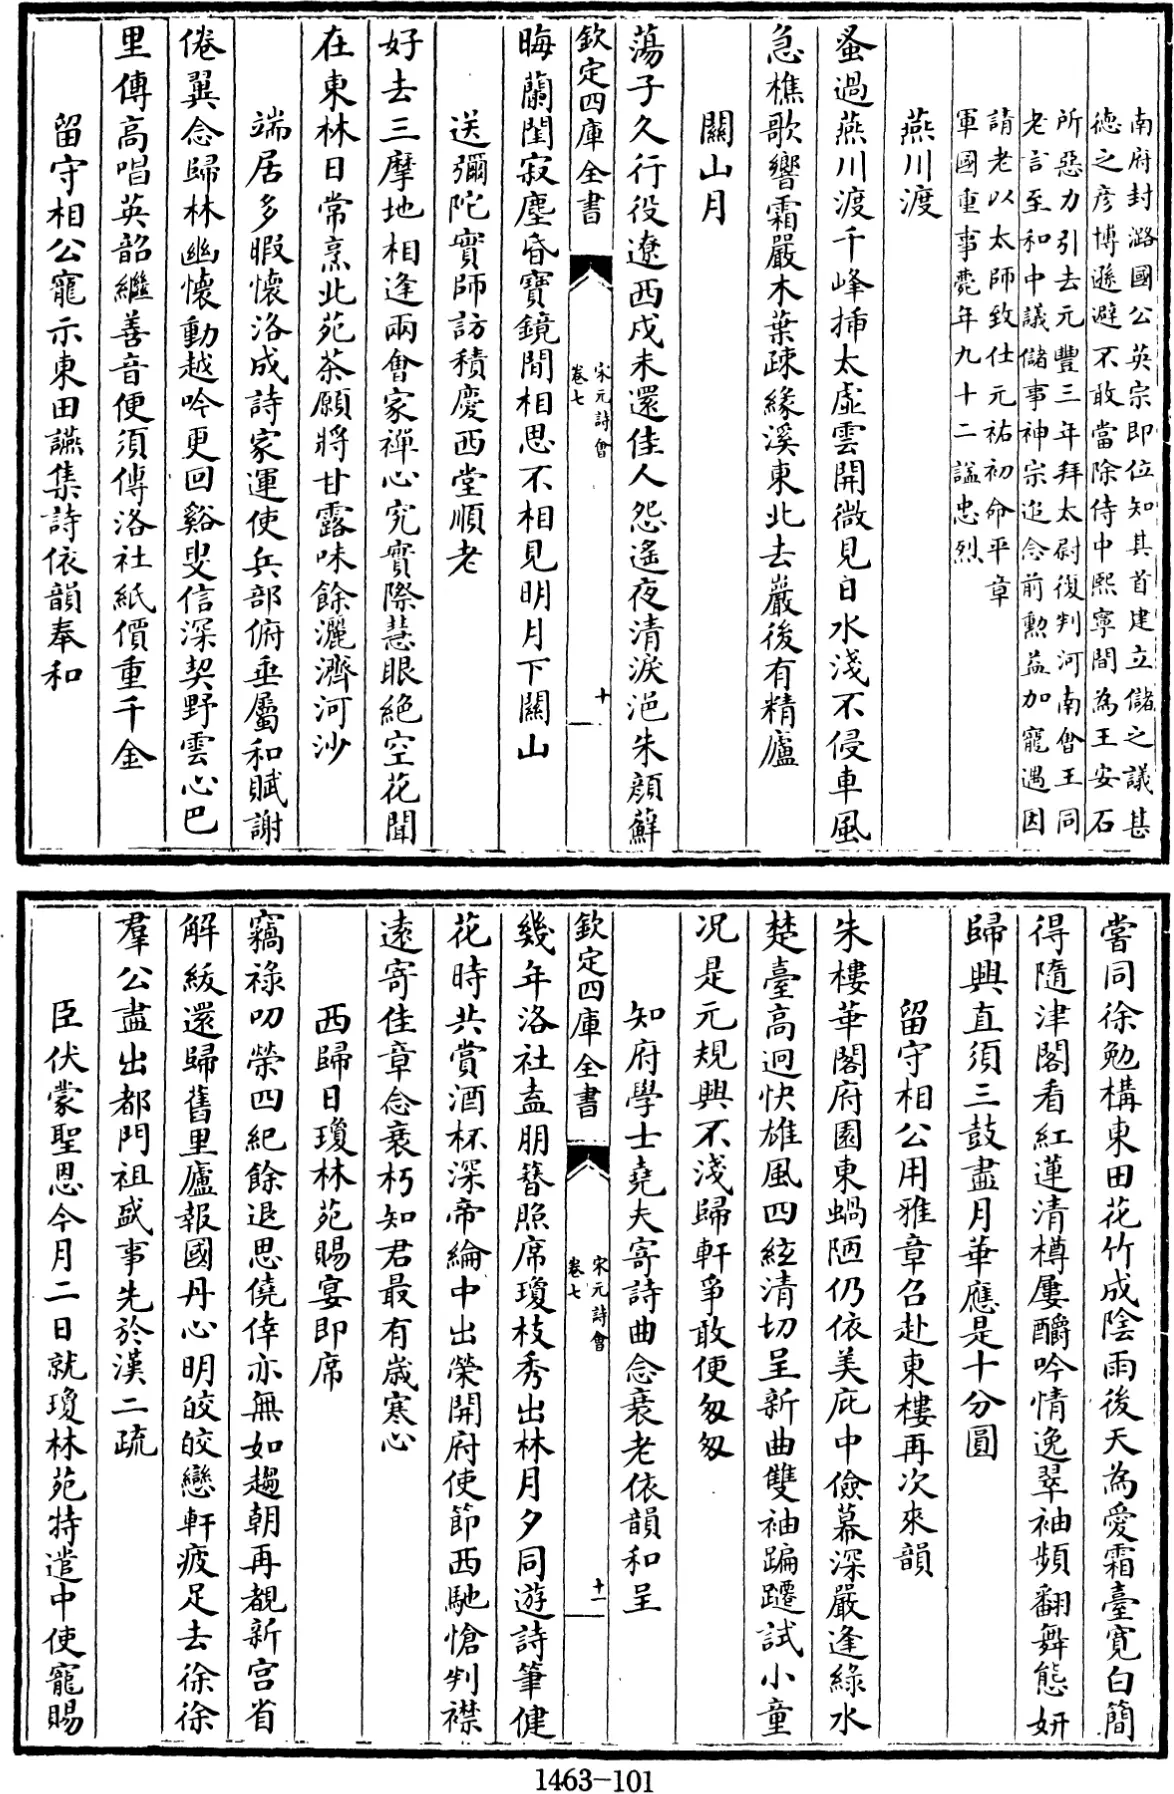 南府封潞國公英宗即位知其首建立儲之議甚
德之彦博遜避不敢當除侍中熙寧間為王安石
所惡力引去元豐三年拜太尉復判河南會王同
老言至和中議儲事神宗追念前勲益加寵遇因
請老以太師致仕元祐初命平章
軍國重事薨年九十二諡忠烈
燕川渡
蚤過燕川渡千峰揷太虛雲開微見日水淺不侵車風
急樵歌響霜嚴木葉疎緣溪東北去巖後有精廬
關山月
蕩子久行役遼西戍未還佳人怨遙夜清淚浥朱顔蘚
欽定四庫全書
宋元詩會
卷七
十
晦蘭閨寂塵昏寶鏡閒相思不相見明月下關山
送彌陀實師訪積慶西堂順老
好去三摩地相逢兩會家禪心究實際慧眼絕空花聞
在東林日常烹北苑茶願將甘露味餘灑濟河沙
端居多暇懷洛成詩家運使兵部俯垂屬和賦謝
倦翼念歸林幽懷動越吟更回谿叟信深契野雲心巴
里傳高唱英韶繼善音便須傳洛社紙價重千金
留守相公寵示東田讌集詩依韻奉和
嘗同徐勉構東田花竹成陰雨後天為愛霜臺寛白簡
得隨津閣看紅蓮清樽屢釂吟情逸翠袖頻翻舞態妍
歸興直須三鼓盡月華應是十分圓
留守相公用雅章召赴東樓再次來韻
朱樓華閣府園東蝸陋仍依美庇中儉幕深嚴逢綠水
楚臺高迥快雄風四絃清切呈新曲雙袖蹁躚試小童
况是元規興不淺歸軒爭敢便匆匆
知府學士堯夫寄詩曲念衰老依韻和呈
欽定四庫全書
宋元詩會
卷七
十一
幾年洛社盍朋簪照席瓊枝秀出林月夕同遊詩筆健
花時共賞酒杯深帝綸中出榮開府使節西馳愴判襟
逺寄佳章念衰朽知君最有歲寒心
西歸日瓊林苑賜宴即席
竊祿叨榮四紀餘退思僥倖亦無如趨朝再覩新宫省
解紱還歸舊里廬報國丹心明皎皎戀軒疲足去徐徐
羣公盡出都門祖盛事先於漢二疏
臣伏蒙聖恩今月二日就瓊林苑特遣中使寵賜
1463-101